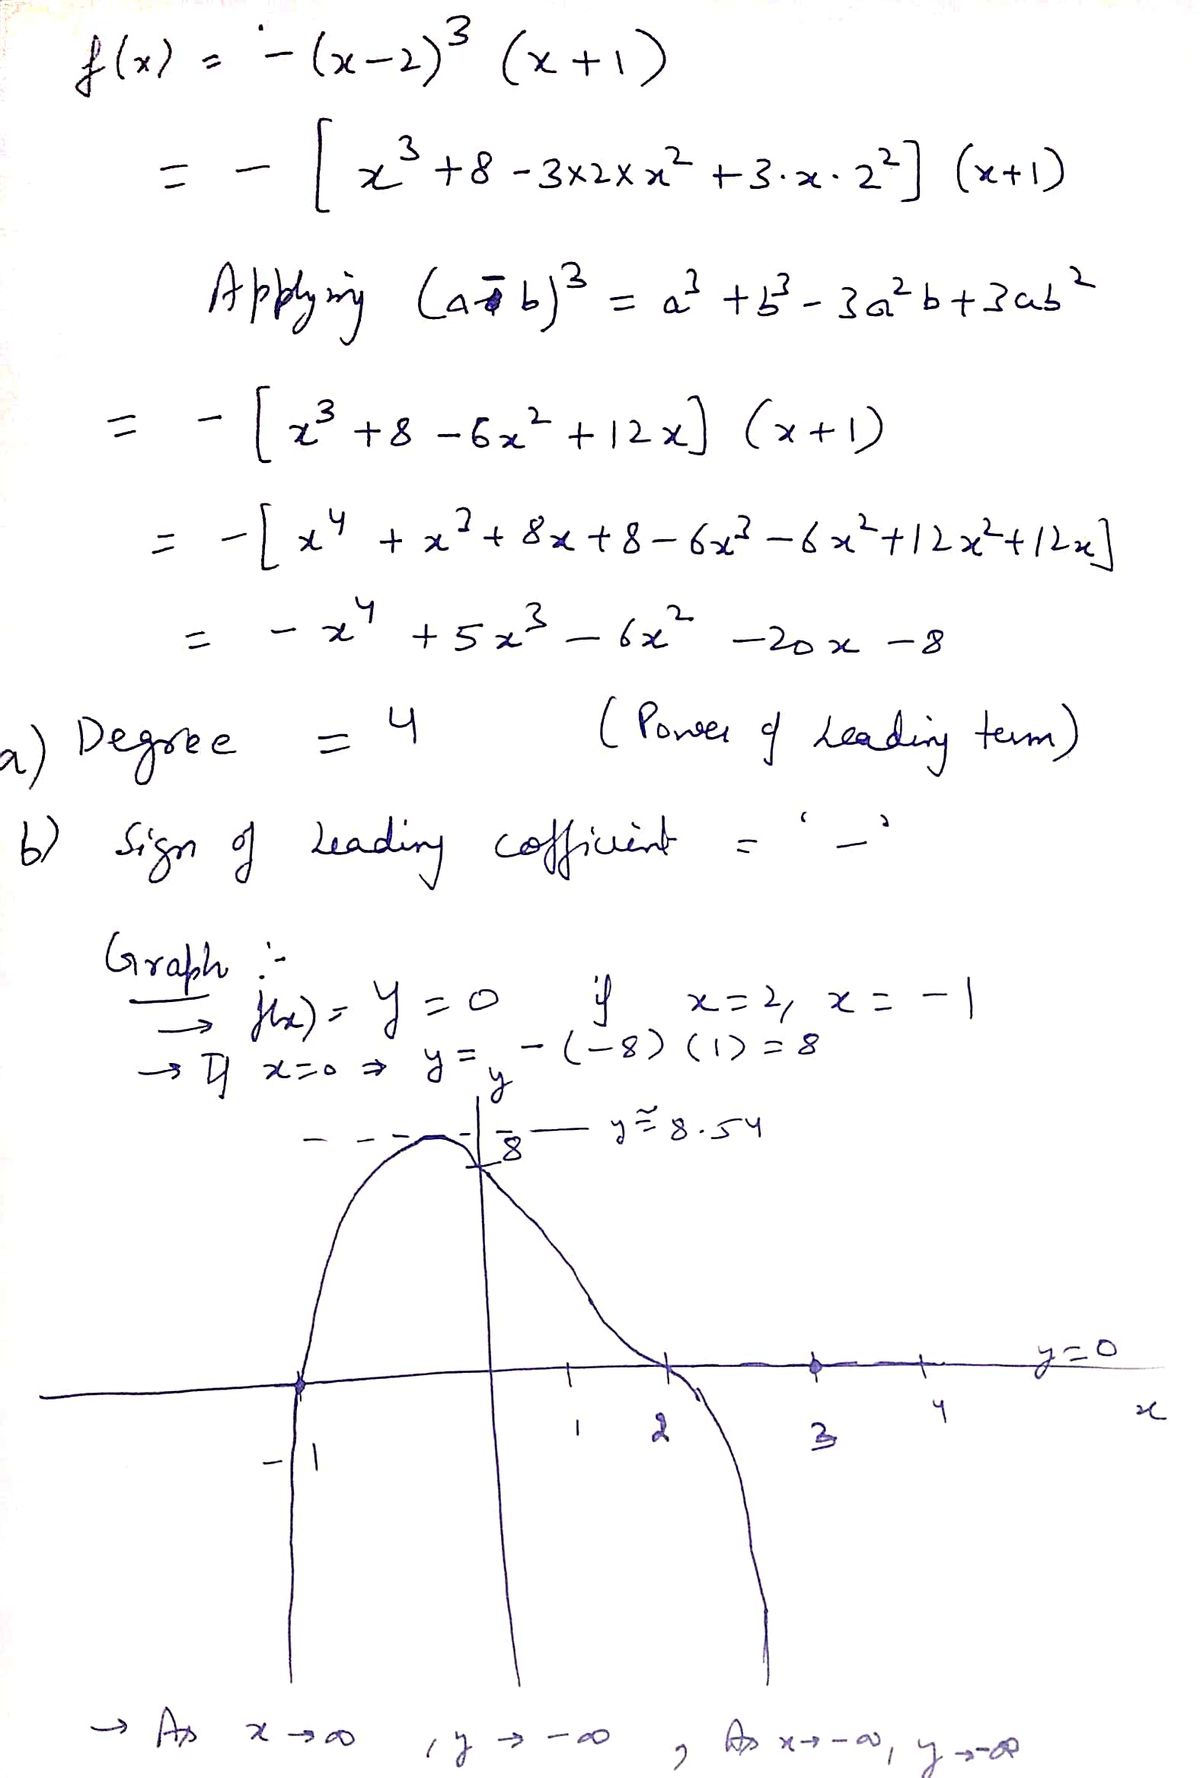 f(x) = -(x-2)³ (x+1)
= - [x³ +8 -3×2×x² +3·x·2²] (x+1)
Applying (a-b)³ = a³ +b³ -3a²b+3ab²
= - [x³ +8 -6x² +12x] (x+1)
= -[x⁴ + x³ + 8x +8 -6x³ -6x² +12x² +12x]
= -x⁴ +5x³ -6x² -20x -8
a) Degree = 4 (Power of Leading term)
b) Sign of Leading cofficient = ' - '
Graph :-
→ f(x) = y = 0 if x=2, x = -1
→ If x=0 ⇒ y = -(-8)(1) = 8
y
8 — y ≅ 8.54
y=0
-1 1 2 3 4 x
→ As x→∞ , y → -∞ , As x→-∞, y→-∞